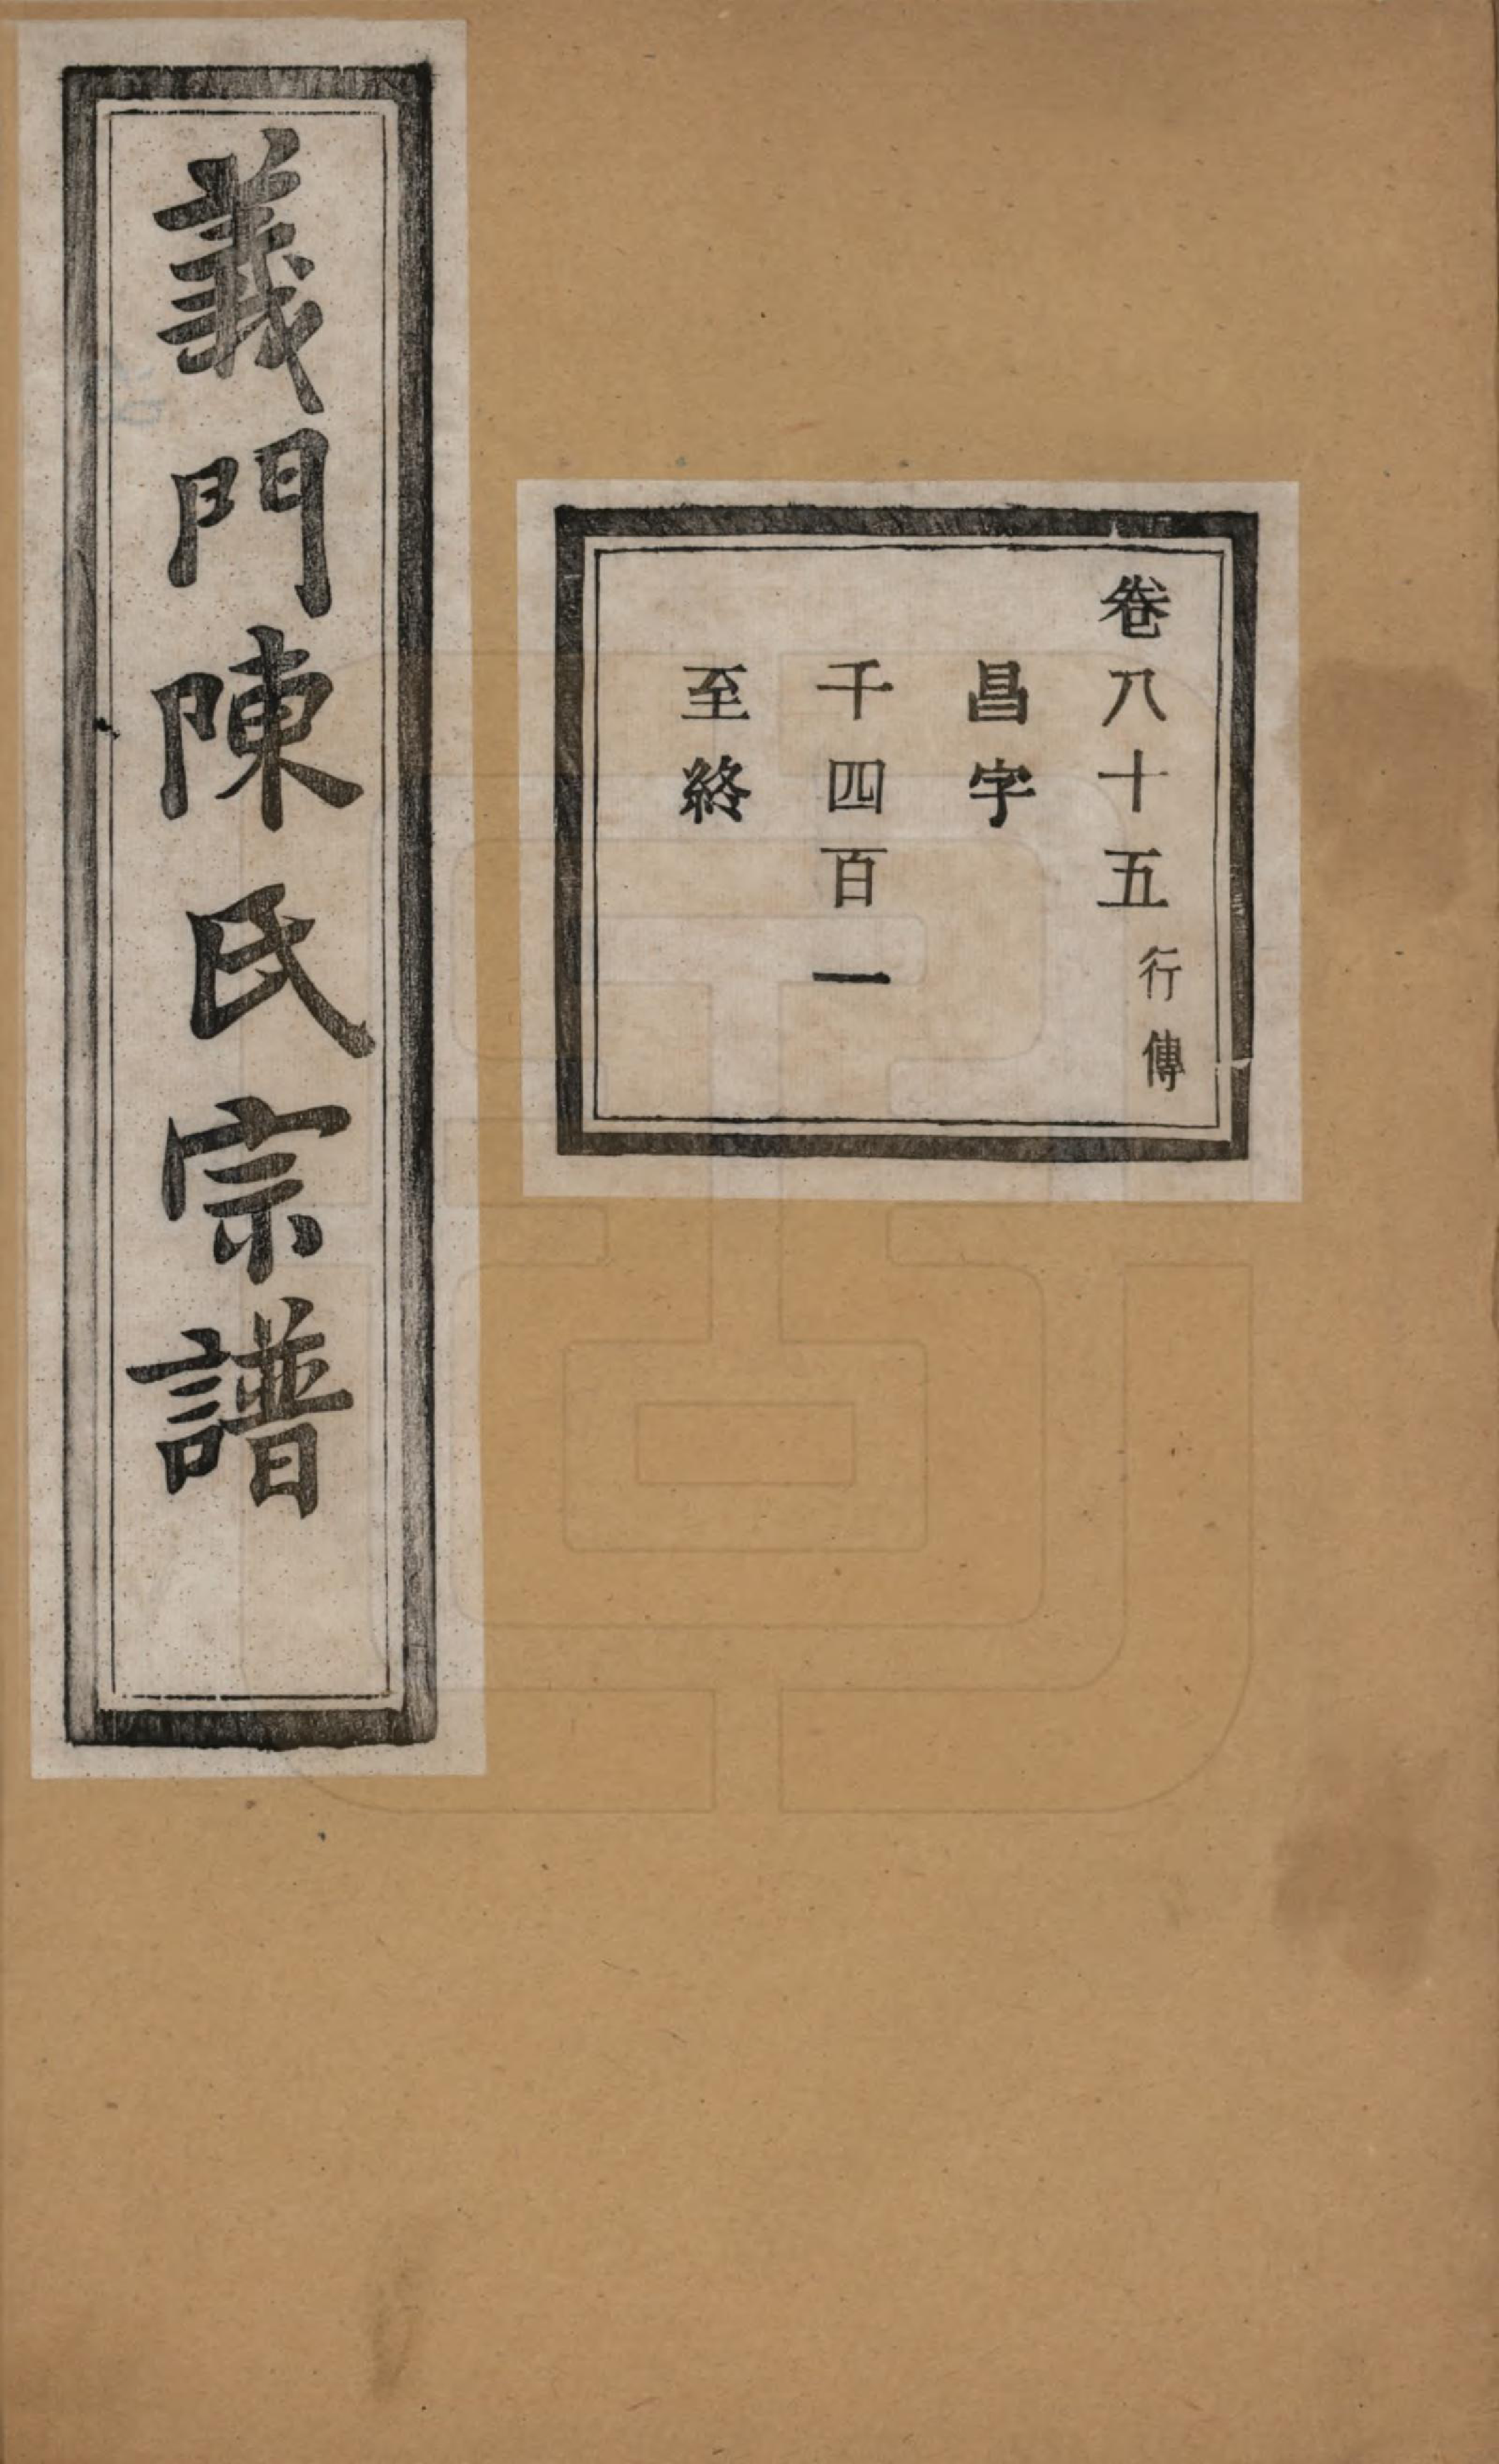 卷八十五行傳
昌字
千四百一
至終
義門陳氏宗譜